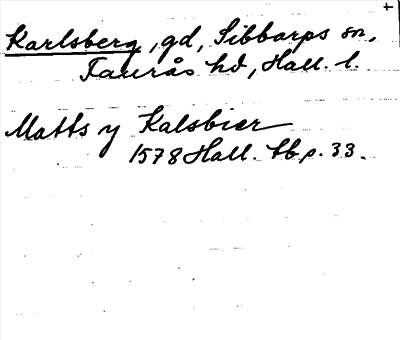 Karlsberg, gd, Sibbarps sn,
Faurås hd, Hall. l.
Matts y Kalsbier
1578 Hall. tb p. 33.